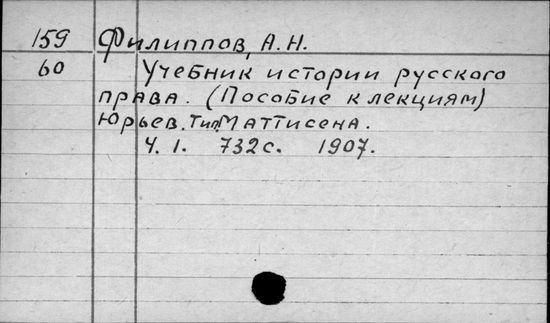 159 Филиппов, А.Н.
60 Учебник истории русского
права. (Пособие к лекциям)
Юрьев. Тип. Маттисена.
Ч. 1. 732 с. 1907.